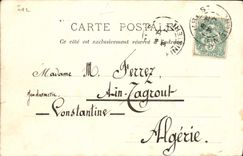 CARTE POSTALE
Ce côté est exclusivement réservé à l'adresse
Madame M. Ferrez
Gendarmerie Ain-Zagrout
Constantine
Algérie.